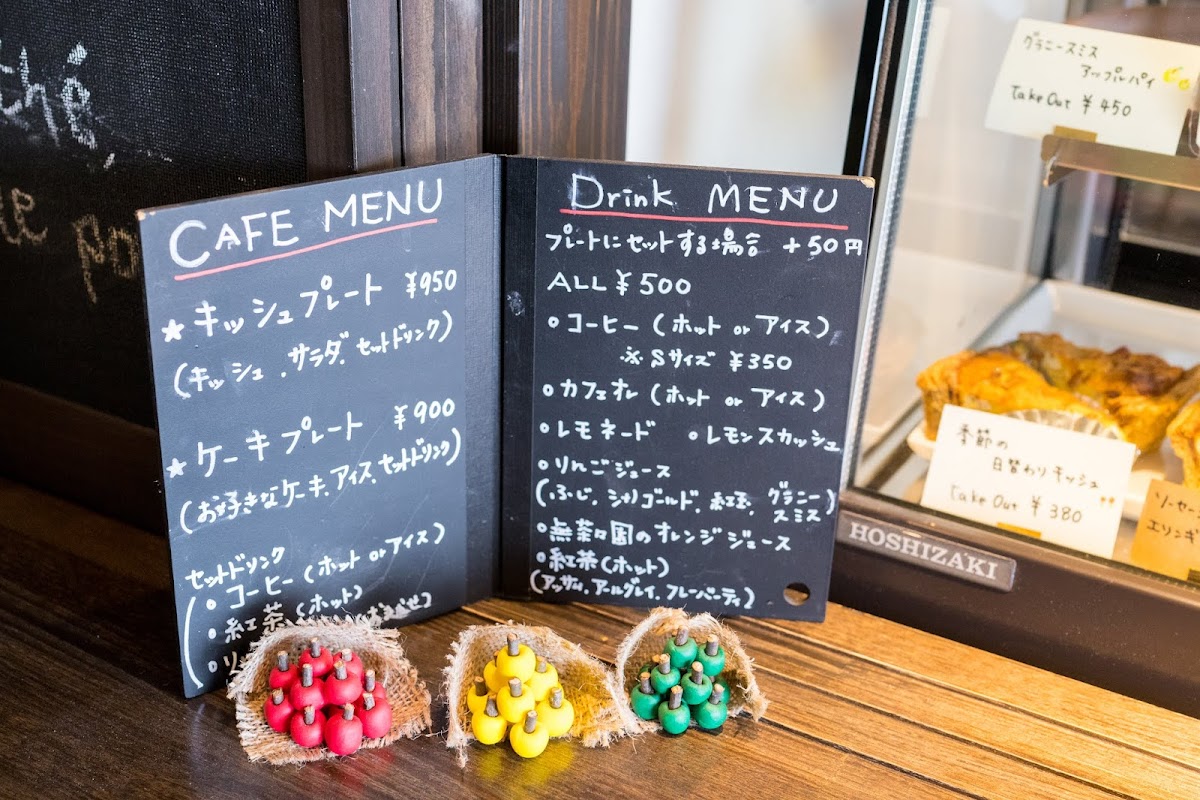 thé,
CAFE MENU
★キッシュプレート ¥950
(キッシュ、サラダ、セットドリンク)
★ケーキプレート ¥900
(お好きなケーキ、アイス、セットドリンク)
セットドリンク
コーヒー (ホット or アイス)
紅茶 (ホット)
Drink MENU
プレートにセットする場合 +50円
ALL ¥500
コーヒー (ホット or アイス)
※ Sサイズ ¥350
カフェオレ (ホット or アイス)
レモネード レモンスカッシュ
りんごジュース
(ふじ、シナノゴールド、紅玉、グラニースミス)
無茶々園のオレンジジュース
紅茶(ホット)
(アッサム、アールグレイ、フレーバーティ)
グラニースミス
アップルパイ
Take Out ¥450
季節の
日替わりキッシュ
Take Out ¥380
ソーセー
エリンギ
HOSHIZAKI